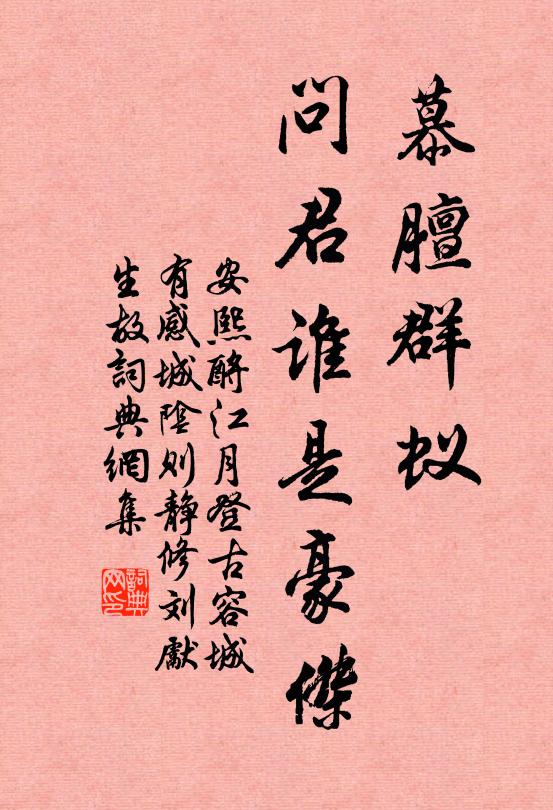 慕膻群蚁
問君谁是豪傑
安熙酹江月登古容城
有感城陰则静修刘獻
生故詞典網集
詞典网印